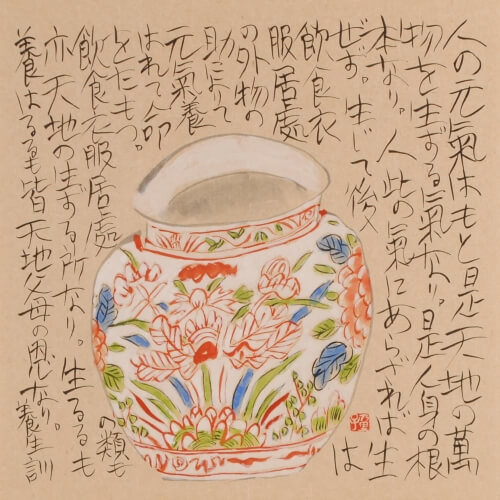 人の元氣はもと是天地の萬
物を生ずる氣なり。是人身の根
本なり。人此の氣にあらざれば生
ぜず。生じて後は
飲食衣
服居處
の外物の
助によりて
元氣養
はれて命
をたもつ。
飲食衣服居處の類も
亦天地の生ずる所なり。生るるも
養はるるも皆天地父母の恩なり。養生訓